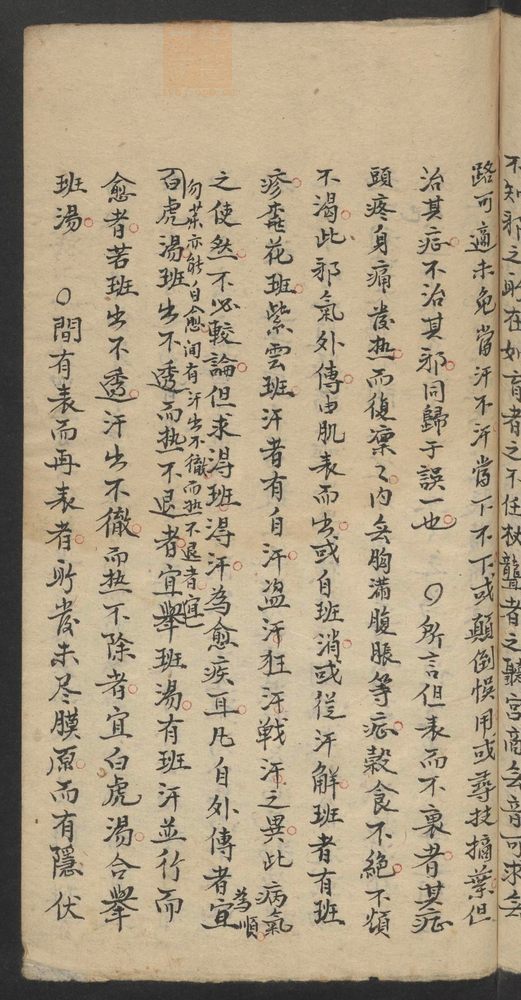 不知邪之所在如盲者之不任杖聾者之聽宮商無音可求無
路可適未免當汗不汗當下不下或顛倒悞用或尋枝摘葉但
治其症不治其邪同歸于誤一也　○所言但表而不裏者其症
頭疼身痛發热而復凜々內無胸滿腹脹等症穀食不絕不煩
不渴此邪氣外傳由肌表而出或自班消或從汗解班者有班
疹桃花班紫雲班汗者有自汗盜汗狂汗戰汗之異此病氣
之使然不必較論但求淂班淂汗為愈疾耳凡自外傳者宜為順
勿藥亦能自愈间有汗出不徹而热不退者宜
白虎湯班出不透而热不退者宜舉班湯有班汗並行而
愈者若班出不透汗出不徹而热不除者宜白虎湯合舉
班湯　○間有表而再表者所發未尽膜原而有隱伏